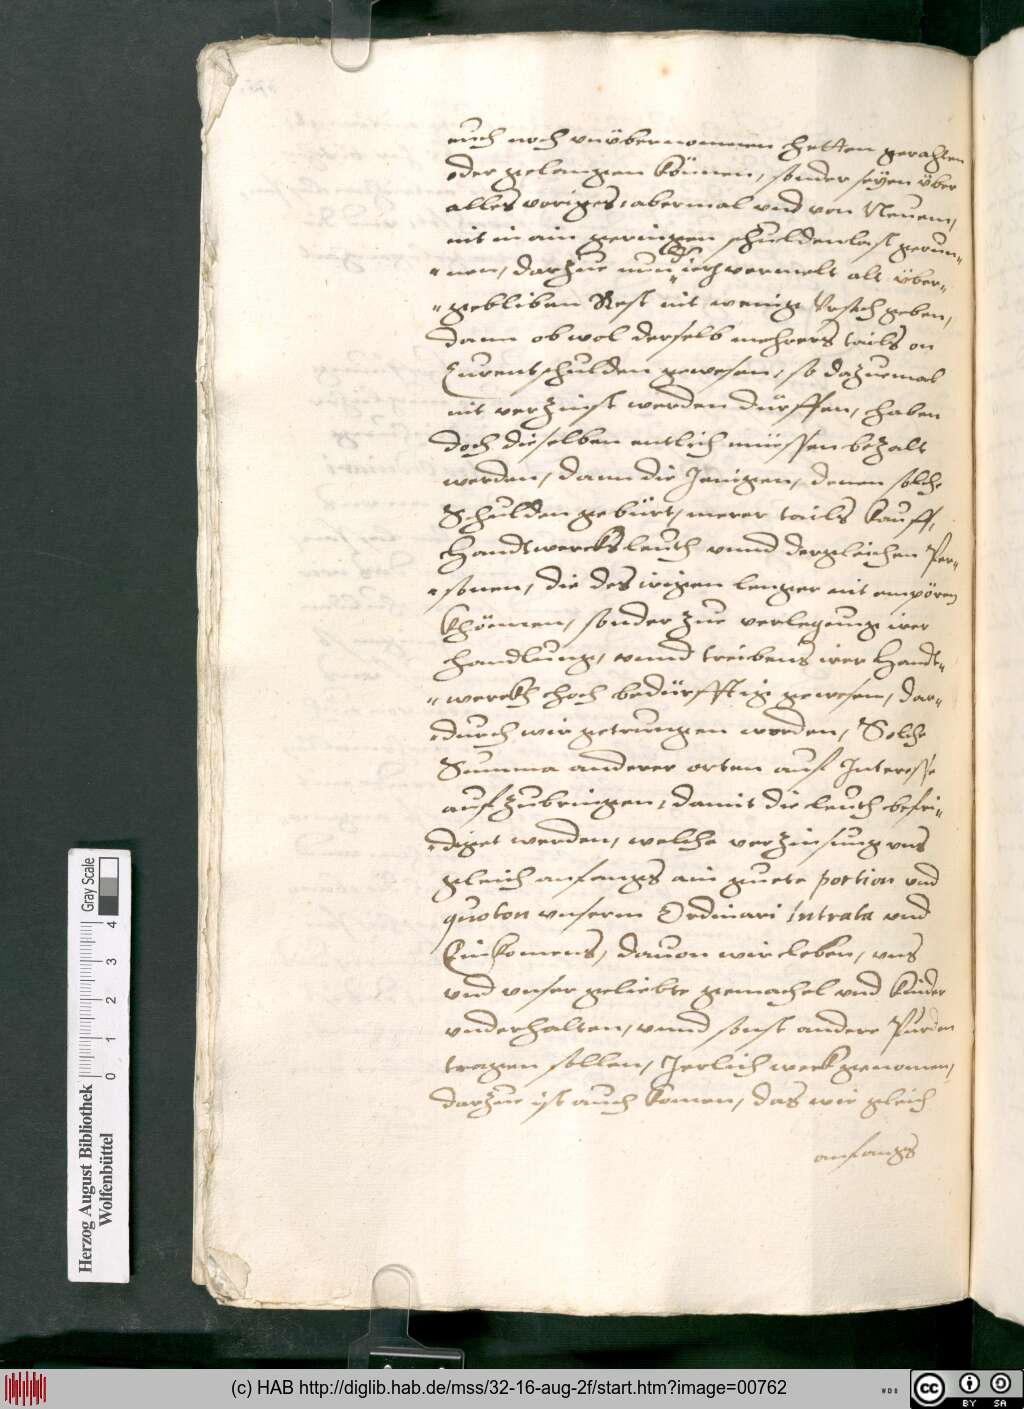 auch noch vnübernommen hetten gerahten
oder gelangen können, sonder seyen über
alles voriges, abermal vnd von Neuem,
nit in ain geringen schuldenlast gerun-
-nen, darzue nun ietz vermelt alt über-
-gebliben Rest nit wenig Vrsach geben,
dann ob wol derselb mehrers tails on
Curentschulden gewesen, so dazuemal
nit verzinst werden dürffen, haben
doch dieselben entlich müessen bezalt
werden, dann die Jenigen, denen solche
Schulden gebürt, merer tails Kauff,
Handtwercksleuth vnnd dergleichen Per-
-sonen, die des irigen lenger nit empören
khöemen, sonder zue verlegung irer
handlung, vnnd treibens irer Handt-
-werckh hoch bedürfftig gewesen, dar-
-durch wir getrungen worden, Solche
Summa anderer orten auf Interesse
aufzubringen, damit die leuth befri-
-diget werden, welche verzinsung vns
gleich anfangs ain guete portion vnd
quoton vnserm Ordinari Intrata vnd
Einkomens, dauon wir leben, vns
vnd vnser geliebte gemachel vnd Kinder
vnderhalten, vnnd sonst andere Purden
tragen sollen, Jerlich weckgenomen,
darzue ist auch komen, das wir gleich
anfangs
Herzog August Bibliothek
Wolfenbüttel
0 1 2 3 4
Gray Scale
(c) HAB http://diglib.hab.de/mss/32-16-aug-2f/start.htm?image=00762
WDB
CC BY SA